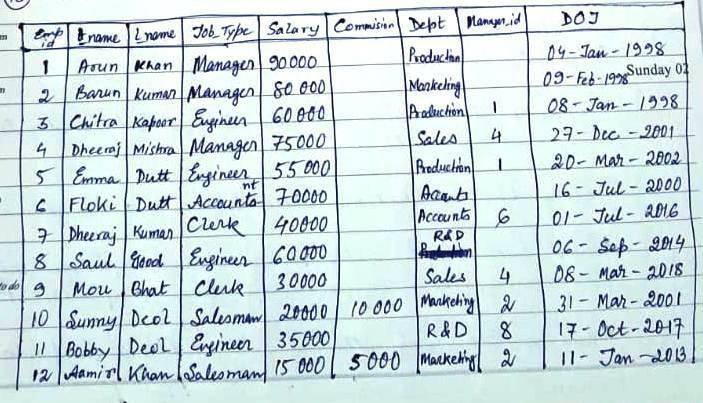 Emp id Ename Lname Job_Type Salary Commision Dept Manager_id DOJ
1 Arun Khan Manager 90000 Production 04-Jan-1998
Sunday 02
2 Barun Kumar Manager 80000 Marketing 09-Feb-1998
3 Chitra Kapoor Engineer 60000 Production 1 08-Jan-1998
4 Dheeraj Mishra Manager 75000 Sales 4 27-Dec-2001
5 Emma Dutt Engineer 55000 Production 1 20-Mar-2002
6 Floki Dutt Accountant 70000 Accounts 16-Jul-2000
7 Dheeraj Kumar Clerk 40000 Accounts 6 01-Jul-2016
8 Saul Good Engineer 60000 R&D 06-Sep-2014
9 Mou Bhat Clerk 30000 Sales 4 08-Mar-2018
10 Sunny Deol Salesman 20000 10000 Marketing 2 31-Mar-2001
11 Bobby Deol Engineer 35000 R&D 8 17-Oct-2017
12 Aamir Khan Salesman 15000 5000 Marketing 2 11-Jan-2013